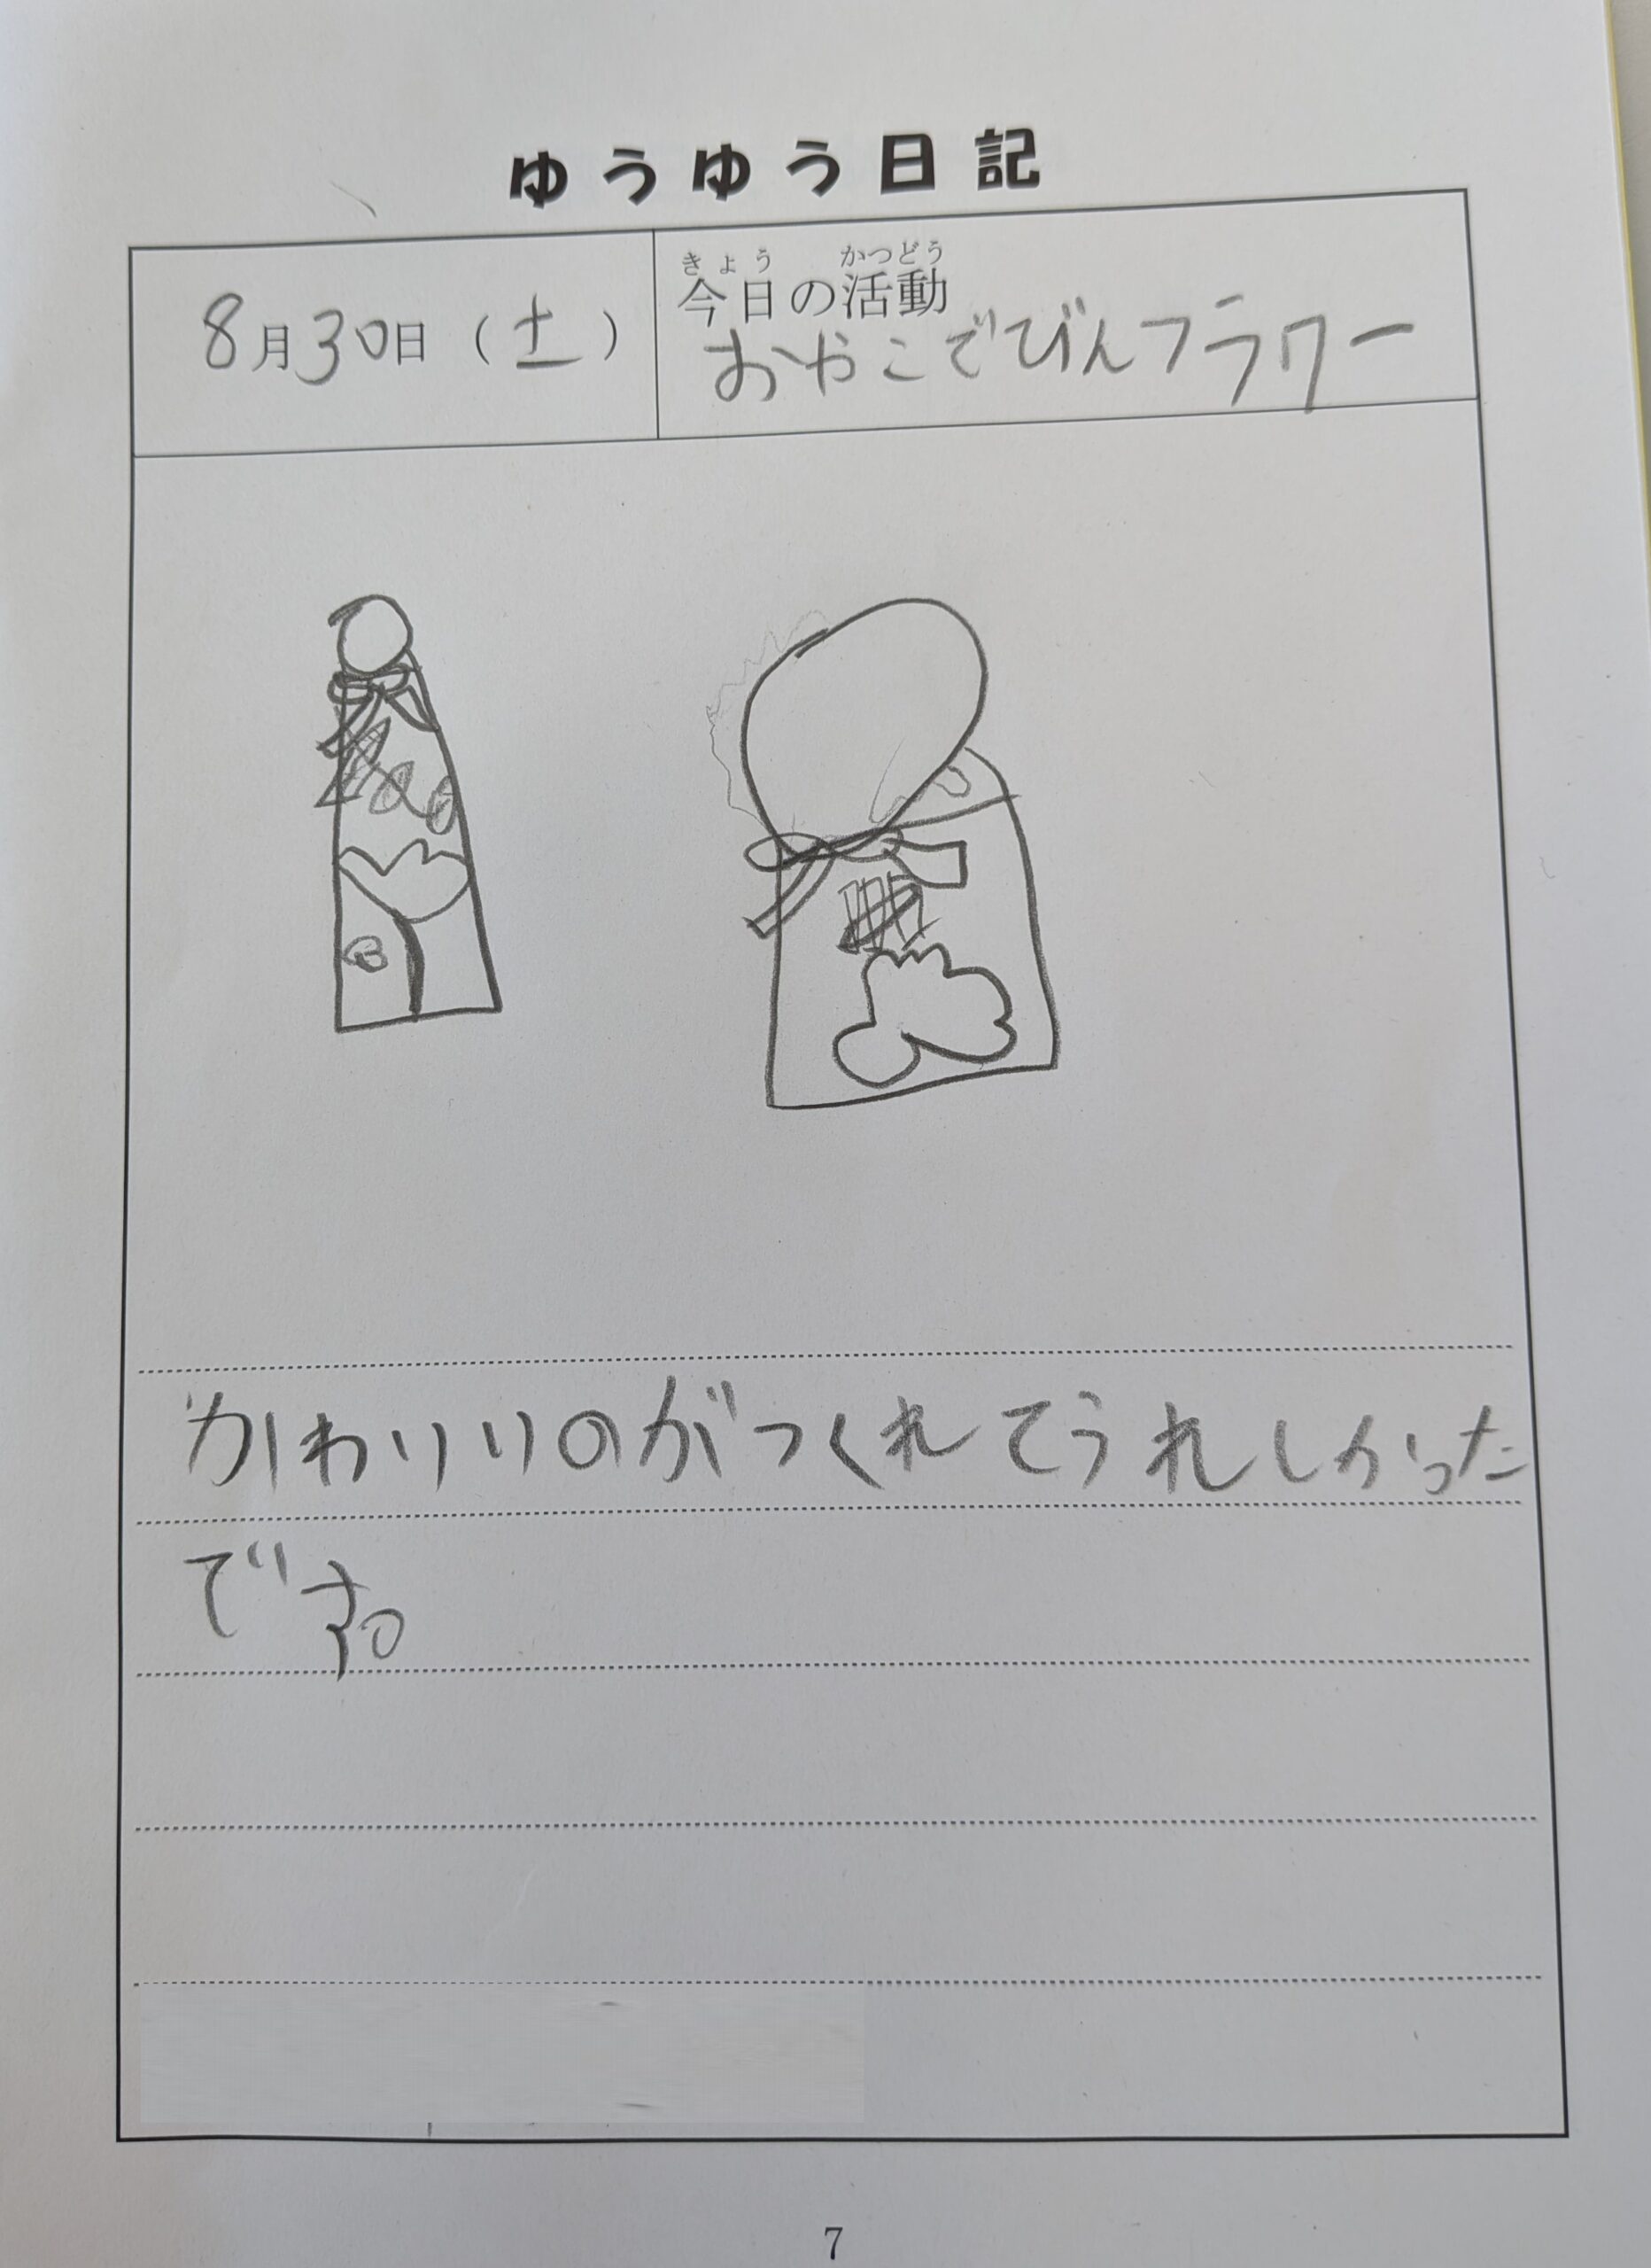 ゆうゆう日記
8月30日（土）
きょう かつどう
今日の活動
おやこでびんフラワー
かわいいのがつくれてうれしかった
です。
7